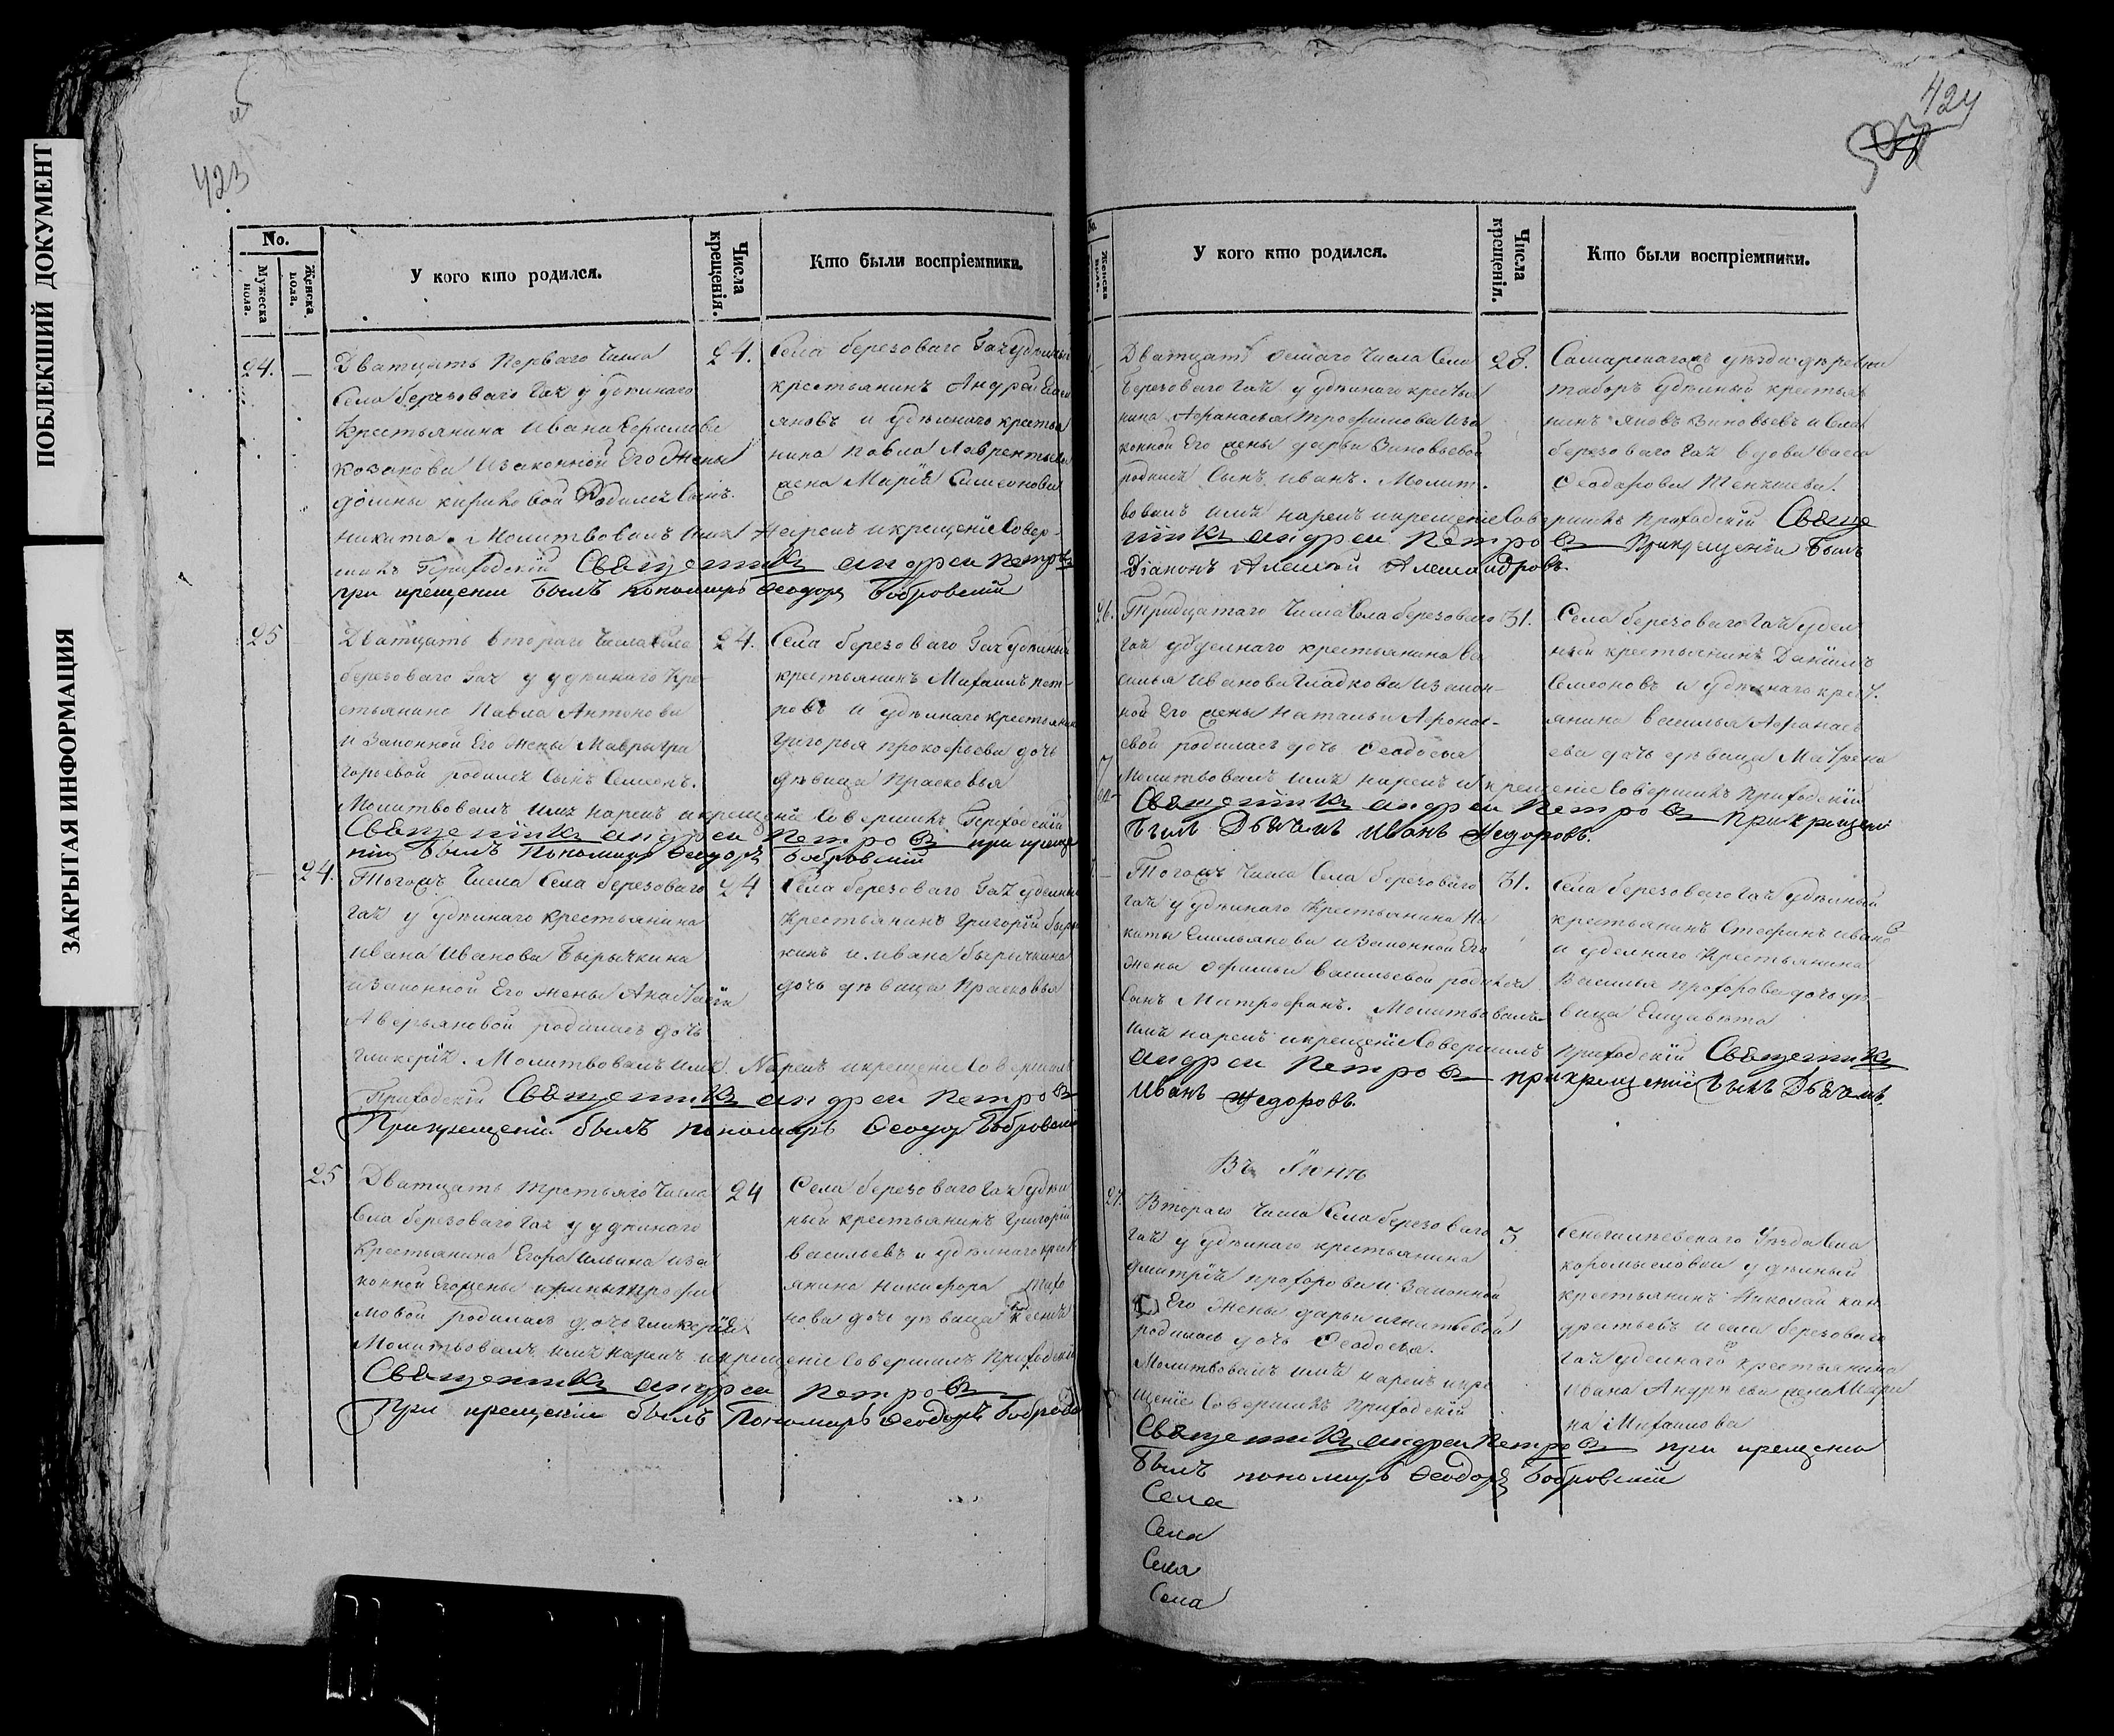 ПОБЛЕКШИЙ ДОКУМЕНТ
ЗАКРЫТАЯ ИНФОРМАЦИЯ
423
No.
Мужеска пола.
Женска пола.
У кого кто родился.
Числа крещенія.
Кто были воспріемники.
24.
Дватцать перваго числа
Села березоваго Гая у удѣлнаго
крестьянина Ивана
козакова изаконной Его жены
родился Сынъ
Никита. Молитвовалъ имя
Нарекъ икрещеніе Совер-
шилъ Приходскій Священникъ андреи петровъ
при крещеніи былъ пономарь Феодоръ Бобровскій
24.
Села березоваго Гая удѣлный
крестьянинъ Андрей
и удѣлнаго крестья
нина Павла Лаврентьева
жена Марія Симеонова
25
Дватцать втораго числа Села
березоваго Гая у удѣлнаго кре-
стьянина Павла Антонова
и Законной Его жены Мавры гри
горьевой родился Сынъ Симеонъ.
Молитвовалъ имя нарекъ икрещеніе Совершилъ Приходскій
Священникъ андреи петровъ при креще
ніи былъ пономарь Феодоръ Бобровскій
24.
Села березоваго Гая удѣлный
крестьянинъ Михаилъ пет-
ровъ и удѣлнаго крестьянина
григорья прокофьева дочь
дѣвица Прасковья
24.
Тогожъ числа Села березоваго
гая у удѣлнаго крестьянина
Ивана Иванова Бырычкина
изаконной Его жены Анастасіи
Аверьяновой родилась дочь
гликерія. Молитвовалъ имя Нарекъ икрещеніе Совершилъ
Приходскій Священникъ андреи петровъ
При крещеніи былъ пономарь Феодоръ Бобровскій
24
Села березоваго Гая уделный
крестьянинъ Григорій
и Ивана Бырычкина
дочь дѣвица Прасковья
25
Дватцать третьяго числа
Села березоваго Гая у удѣлнаго
крестьянина Егора Ильина иза
конной Его жены ирины трофи
мовой родилась дочь гликерія
Молитвовалъ имя нарекъ икрещеніе Совершилъ Приходскій
Священникъ андреи петровъ
При крещеніи былъ Пономарь Феодоръ Бобровскій
24
Села березоваго Гая удѣл
ный крестьянинъ Григорій
васильевъ и удѣлнаго крест
янина Никифора
нова дочь дѣвица
424
No.
Женска пола.
У кого кто родился.
Числа крещенія.
Кто были воспріемники.
Дватцать осмаго числа Села
березоваго гая у удѣлнаго крестья
нина Афанасья трофимова иза
конной Его жены дарьи Зиновьевой
родился Сынъ иванъ. Молит-
вовалъ имя нарекъ икрещеніе Совершилъ Приходскій Свяще
нникъ андреи петровъ При крещеніи былъ
Діаконъ Алексѣй Александровъ.
28.
Самарскаго уѣзда деревни
таборъ удѣлный крестья
нинъ Яковъ Зиновьевъ и Села
березоваго гая вдова
Феодорова
26.
Тридцатаго числа Села березоваго
гая у уделнаго крестьянина Ва
силья Иванова Гладкова изакон-
ной Его жены Натальи Афонас-
евой родилась дочь Феодосья
Молитвовалъ имя нарекъ икрещеніе Совершилъ Приходскій
Священникъ андреи петровъ При крещеніи
былъ Дьячекъ Иванъ Федоровъ.
31.
Села березоваго гая удел
ный крестьянинъ Даніилъ
Семеоновъ и удѣлнаго крест
янина василья Афанась
ева дочь дѣвица Матрена
Тогожъ числа Села березоваго
гая у удѣлнаго крестьянина Ни
киты Емельянова изаконной Его
жены Васильевой родился
Сынъ Митрофанъ. Молитвовалъ
имя нарекъ икрещеніе Совершилъ Приходскій Священникъ
андреи петровъ При крещеніи былъ Дьячекъ
Иванъ Федоровъ.
31.
Села березоваго гая удѣлный
крестьянинъ Стефанъ иванов
и уделнаго крестьянина
Василья прохорова дочь дѣ-
вица Елизавета
Въ Іюнѣ
27.
Втораго числа Села березоваго
гая у удѣлнаго крестьянина
дмитрія прохорова и Законной
Его жены дарьи игнатьевой
родилась дочь Феодосья.
Молитвовалъ имя нарекъ икре
щеніе Совершилъ Приходскій
Священникъ андреи петровъ при крещеніи
былъ пономарь Феодоръ Бобровскій
3
Сенгилѣевскаго Уѣзда Села
коромысловки удѣлный
крестьянинъ Николай кон
дратьевъ и села березоваго
гая уделнаго крестьянина
Ивана Андрѣева жена Мари
на Михаилова
Села
Села
Села
Села